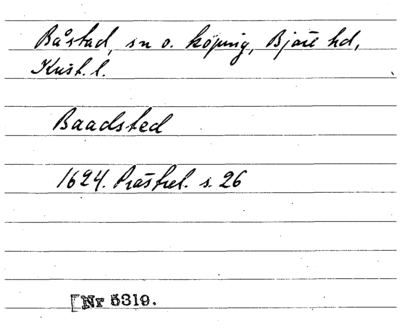 Båstad, sn o. köping, Bjäre hd,
Krist. l.
Baadsted
1624. Prästrel. s. 26
[Nr 5319.